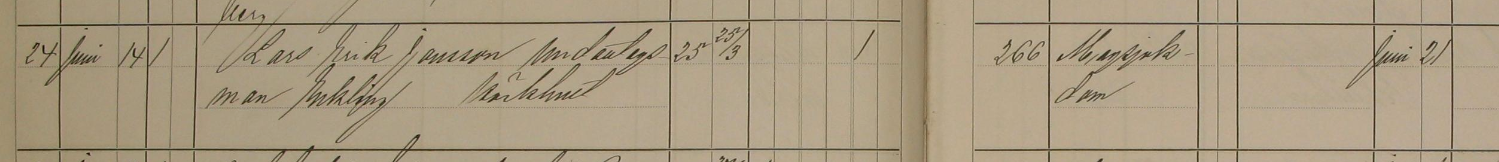 24 Juni 14 1 Lars Erik Jansson Undantags- 25 25/3 1 266 Magsjuk- Juni 21
man Enkling
dom